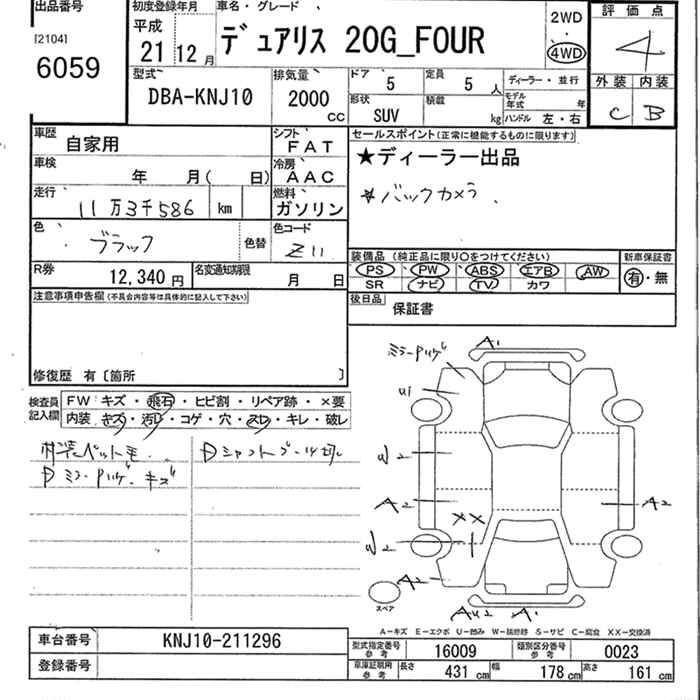 出品番号 初度登録年月 車名・グレード 2WD 評価点
[2104] 平成
6059 21 年 12 月 デュアリス 20G_FOUR 4WD 4
型式 排気量 ドア 5 定員 5 人 ディーラー・並行 外装 内装
DBA-KNJ10 2000 cc 形状 SUV 積載 kg モデル年式 年 C B
ハンドル 左・右
車歴 自家用 シフト FAT セールスポイント(正常に機能するものに限ります)
車検 年 月( 日) 冷房 AAC ★ディーラー出品
走行 11万3千586 km 燃料 ガソリン *バックカメラ.
色 ブラック 色替 色コード Z11
装備品 (純正品に限り○をつけてください) 新車保証書
R券 12,340 円 名変通知期限 月 日 PS PW ABS エアB AW 有・無
SR ナビ TV カワ
注意事項申告欄(不具合内容等は具体的に記入して下さい) 後日品 保証書
修復歴 有[箇所 ]
検査員記入欄 FW キズ・飛石・ヒビ割・リペア跡・×要
内装 キズ・汚レ・コゲ・穴・スレ・キレ・破レ
A1
U1
W2
A2 A2
XX
W2
A2
スペア
AU2 A1
A-キズ E-エクボ U-凹み W-補修跡 S-サビ C-腐食 XX-交換済
車台番号 KNJ10-211296 型式指定番号 参考 16009 類別区分番号 参考 0023
登録番号 車庫証明用 参考 長さ 431 cm 幅 178 cm 高さ 161 cm